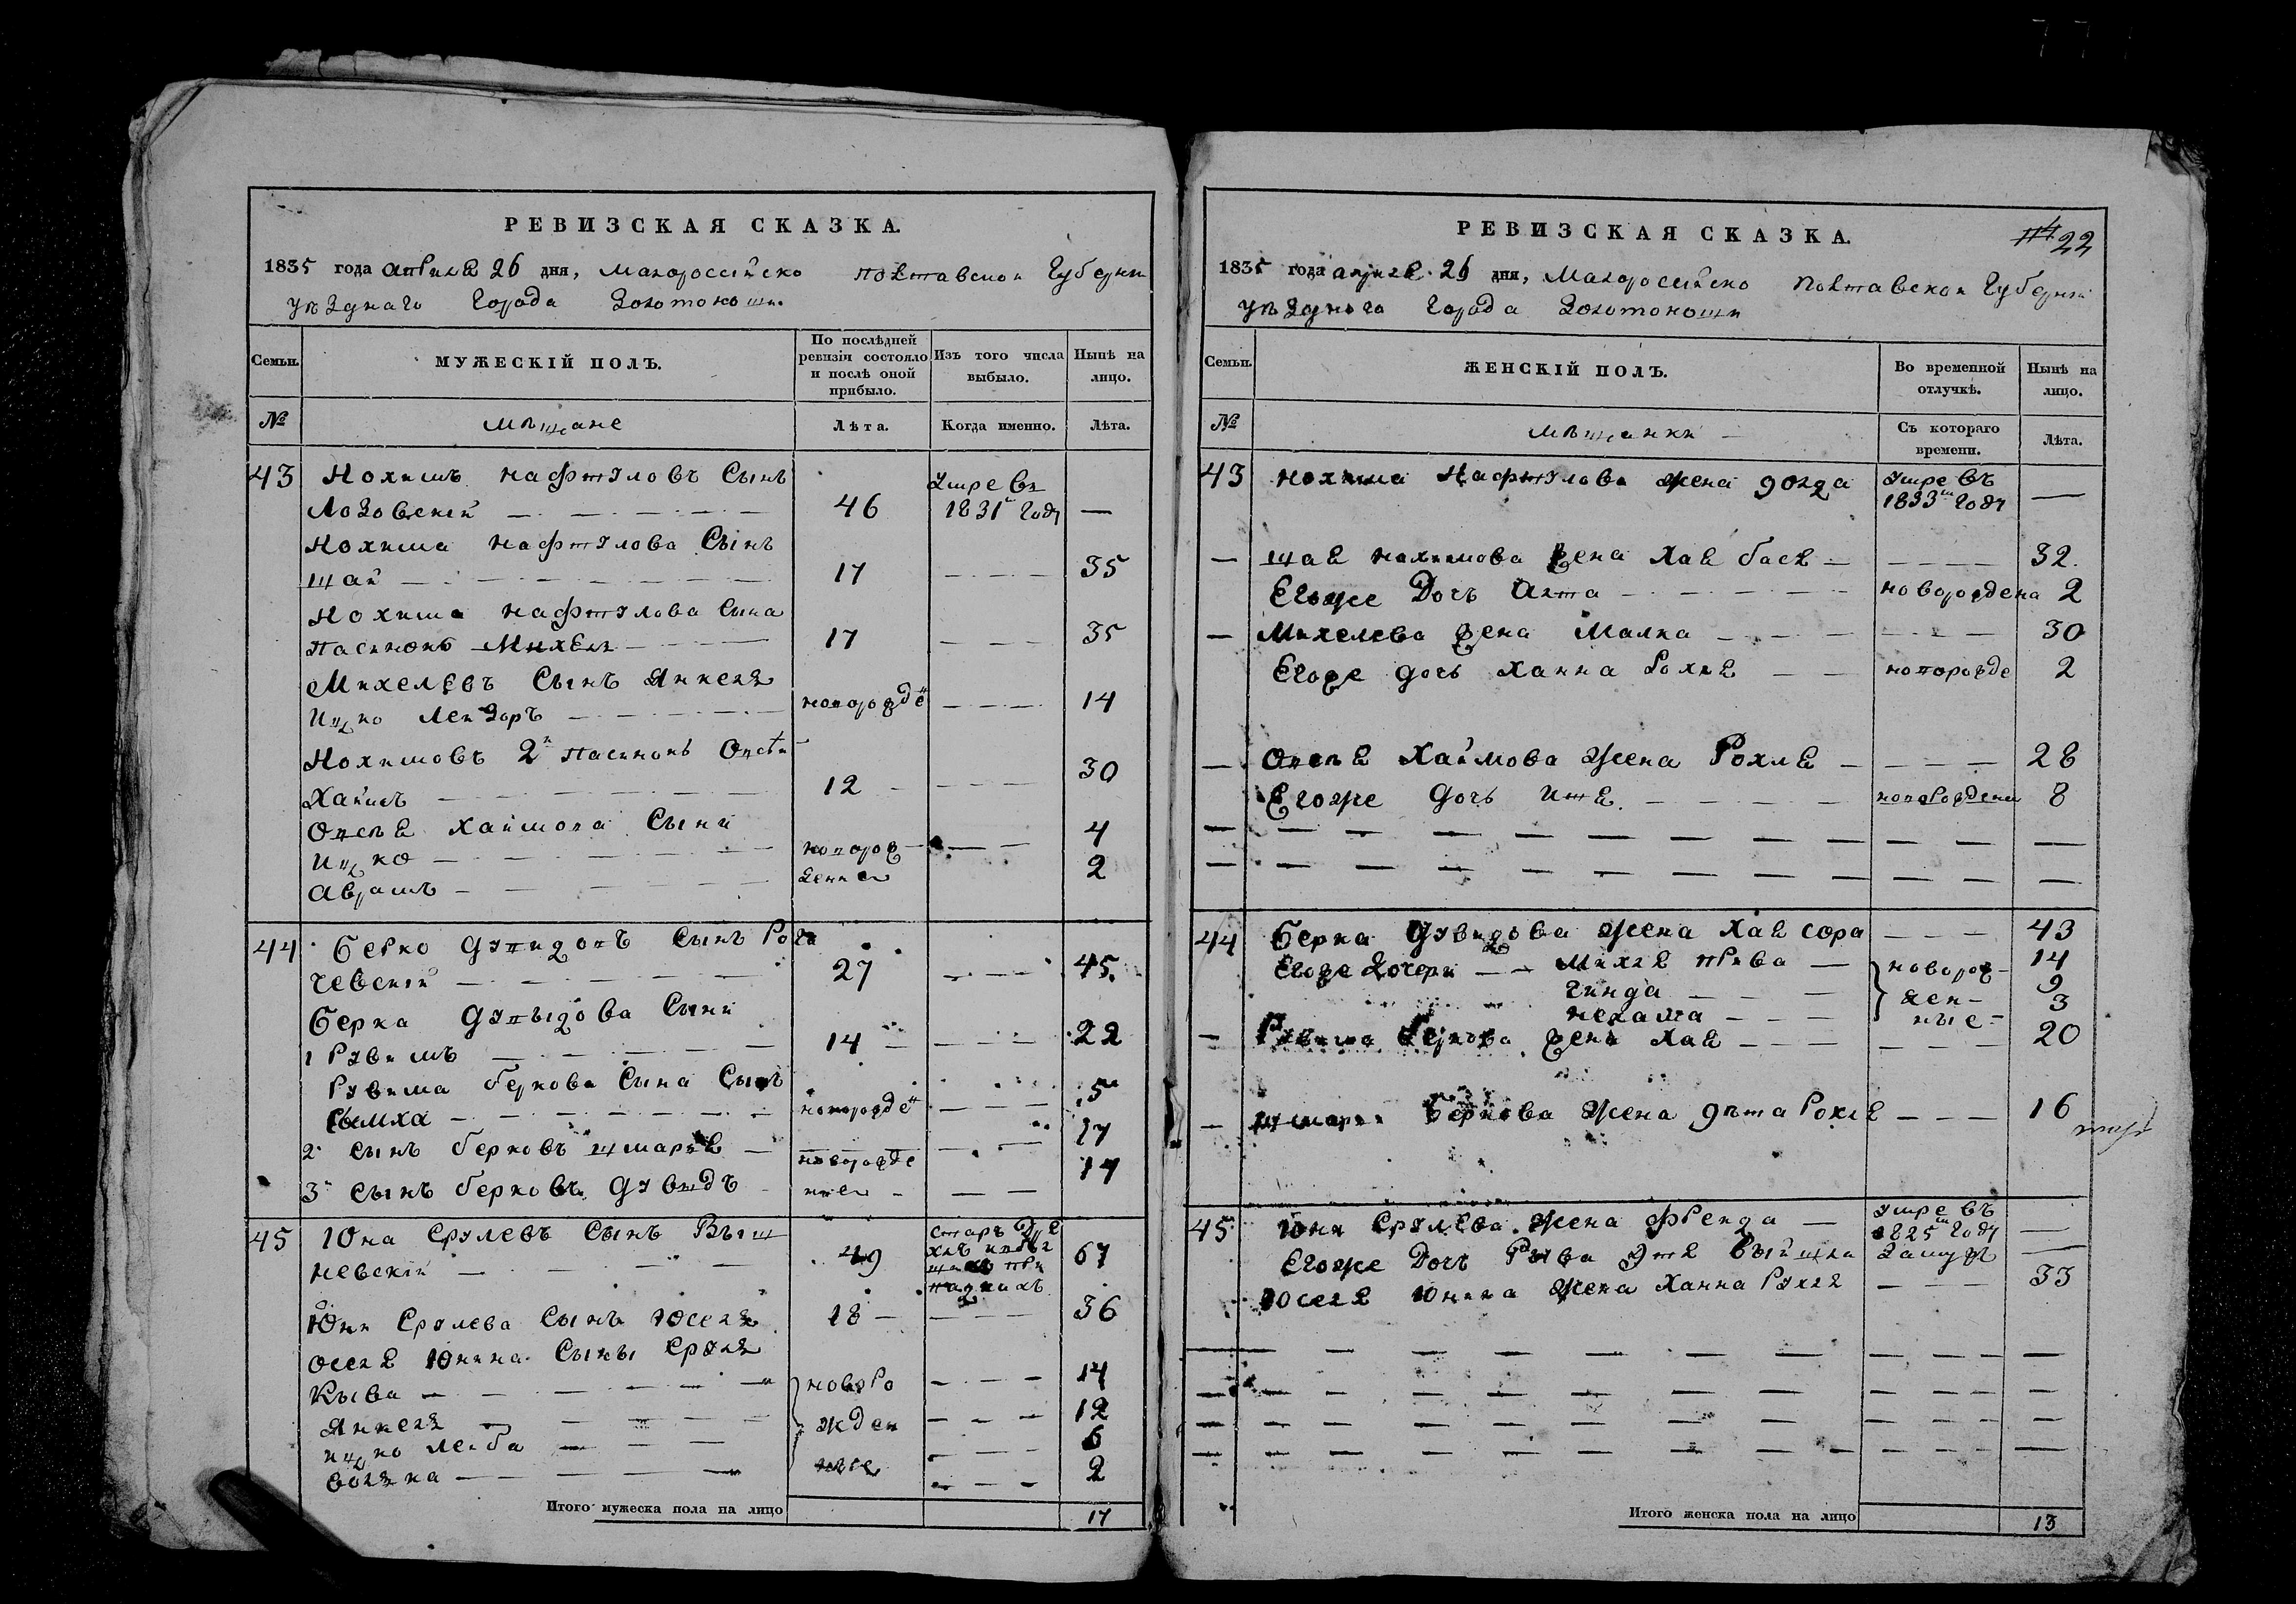 РЕВИЗСКАЯ СКАЗКА.
1835 года апреля 26 дня, Малоросейско Полтавской Губернии
уездного Города Золотоноши
Семьи.
МУЖЕСКІЙ ПОЛЪ.
По послѣдней ревизіи состояло и послѣ оной прибыло.
Изъ того числа выбыло.
Нынѣ на лицо.
№
мѣщане
Лѣта.
Когда именно.
Лѣта.
43 Нохимъ Нафтуловъ Сынъ умре въ
Лозовскій 46 1831 году —
Нохима Нафтулова Сынъ
Шай 17 35
Нохима Нафтулова Сына
пасинокъ Михель 17 35
Михелевъ Сынъ Янкель
Ицко Лейзоръ новорожде 14
Нохимовъ 2й пасинокъ
Хаимъ 12 30
Хаимова Сыни
Ицко новорож 4
Аврамъ денние 2
44 Берко Дувидовъ Сынъ Рога
чевскій 27 45.
Берка Дувыдова Сыни
1 Рувимъ 14 22
Рувима беркова Сына Сынъ
Сымха новорожде 5
2 Сынъ берковъ Шмарія 17
3 Сынъ берковъ Дувидъ 14
45 Юна Срулевъ Сынъ Выш
невскій 49 67
Юни Срулева Сынъ Юсель 18 36
Оселя Юнина Сыны Сруль
Кыва новоро 14
Янкель жден 12
ицко лейба 6
волька ные 2
Итого мужеска пола на лицо 17
РЕВИЗСКАЯ СКАЗКА.
22
1835 года апреля 26 дня, Малоросейско Полтавской Губернии
уездного Города Золотоноши
Семьи.
ЖЕНСКІЙ ПОЛЪ.
Во временной отлучкѣ.
Нынѣ на лицо.
№
мѣщанки
Съ котораго времени.
Лѣта.
43 Нохима Нафтулова жена умре въ
1833 году —
— Шая Нохимова жена Хая бася 32.
Егоже Дочь новорождена 2
— Михелева жена Малка 30
Егоже дочь Ханна Рохля новорожде 2
— Хаимова Жена Рохля 28
Егоже Дочь новорождени 8
44 Берка Дувидова Жена Хая сора 43
Егоже дочери Михля Рива новорож 14
Гинда ден 9
Нехама ные 3
— Рувима Беркова жена Хая 20
— Шмарія Беркова Жена Рохля 16
45 Юни Срулева Жена Френда умре въ
1825 году —
Егоже Дочь вийшла замужъ —
Юселя Юнина Жена Ханна Рухля 33
Итого женска пола на лицо 13